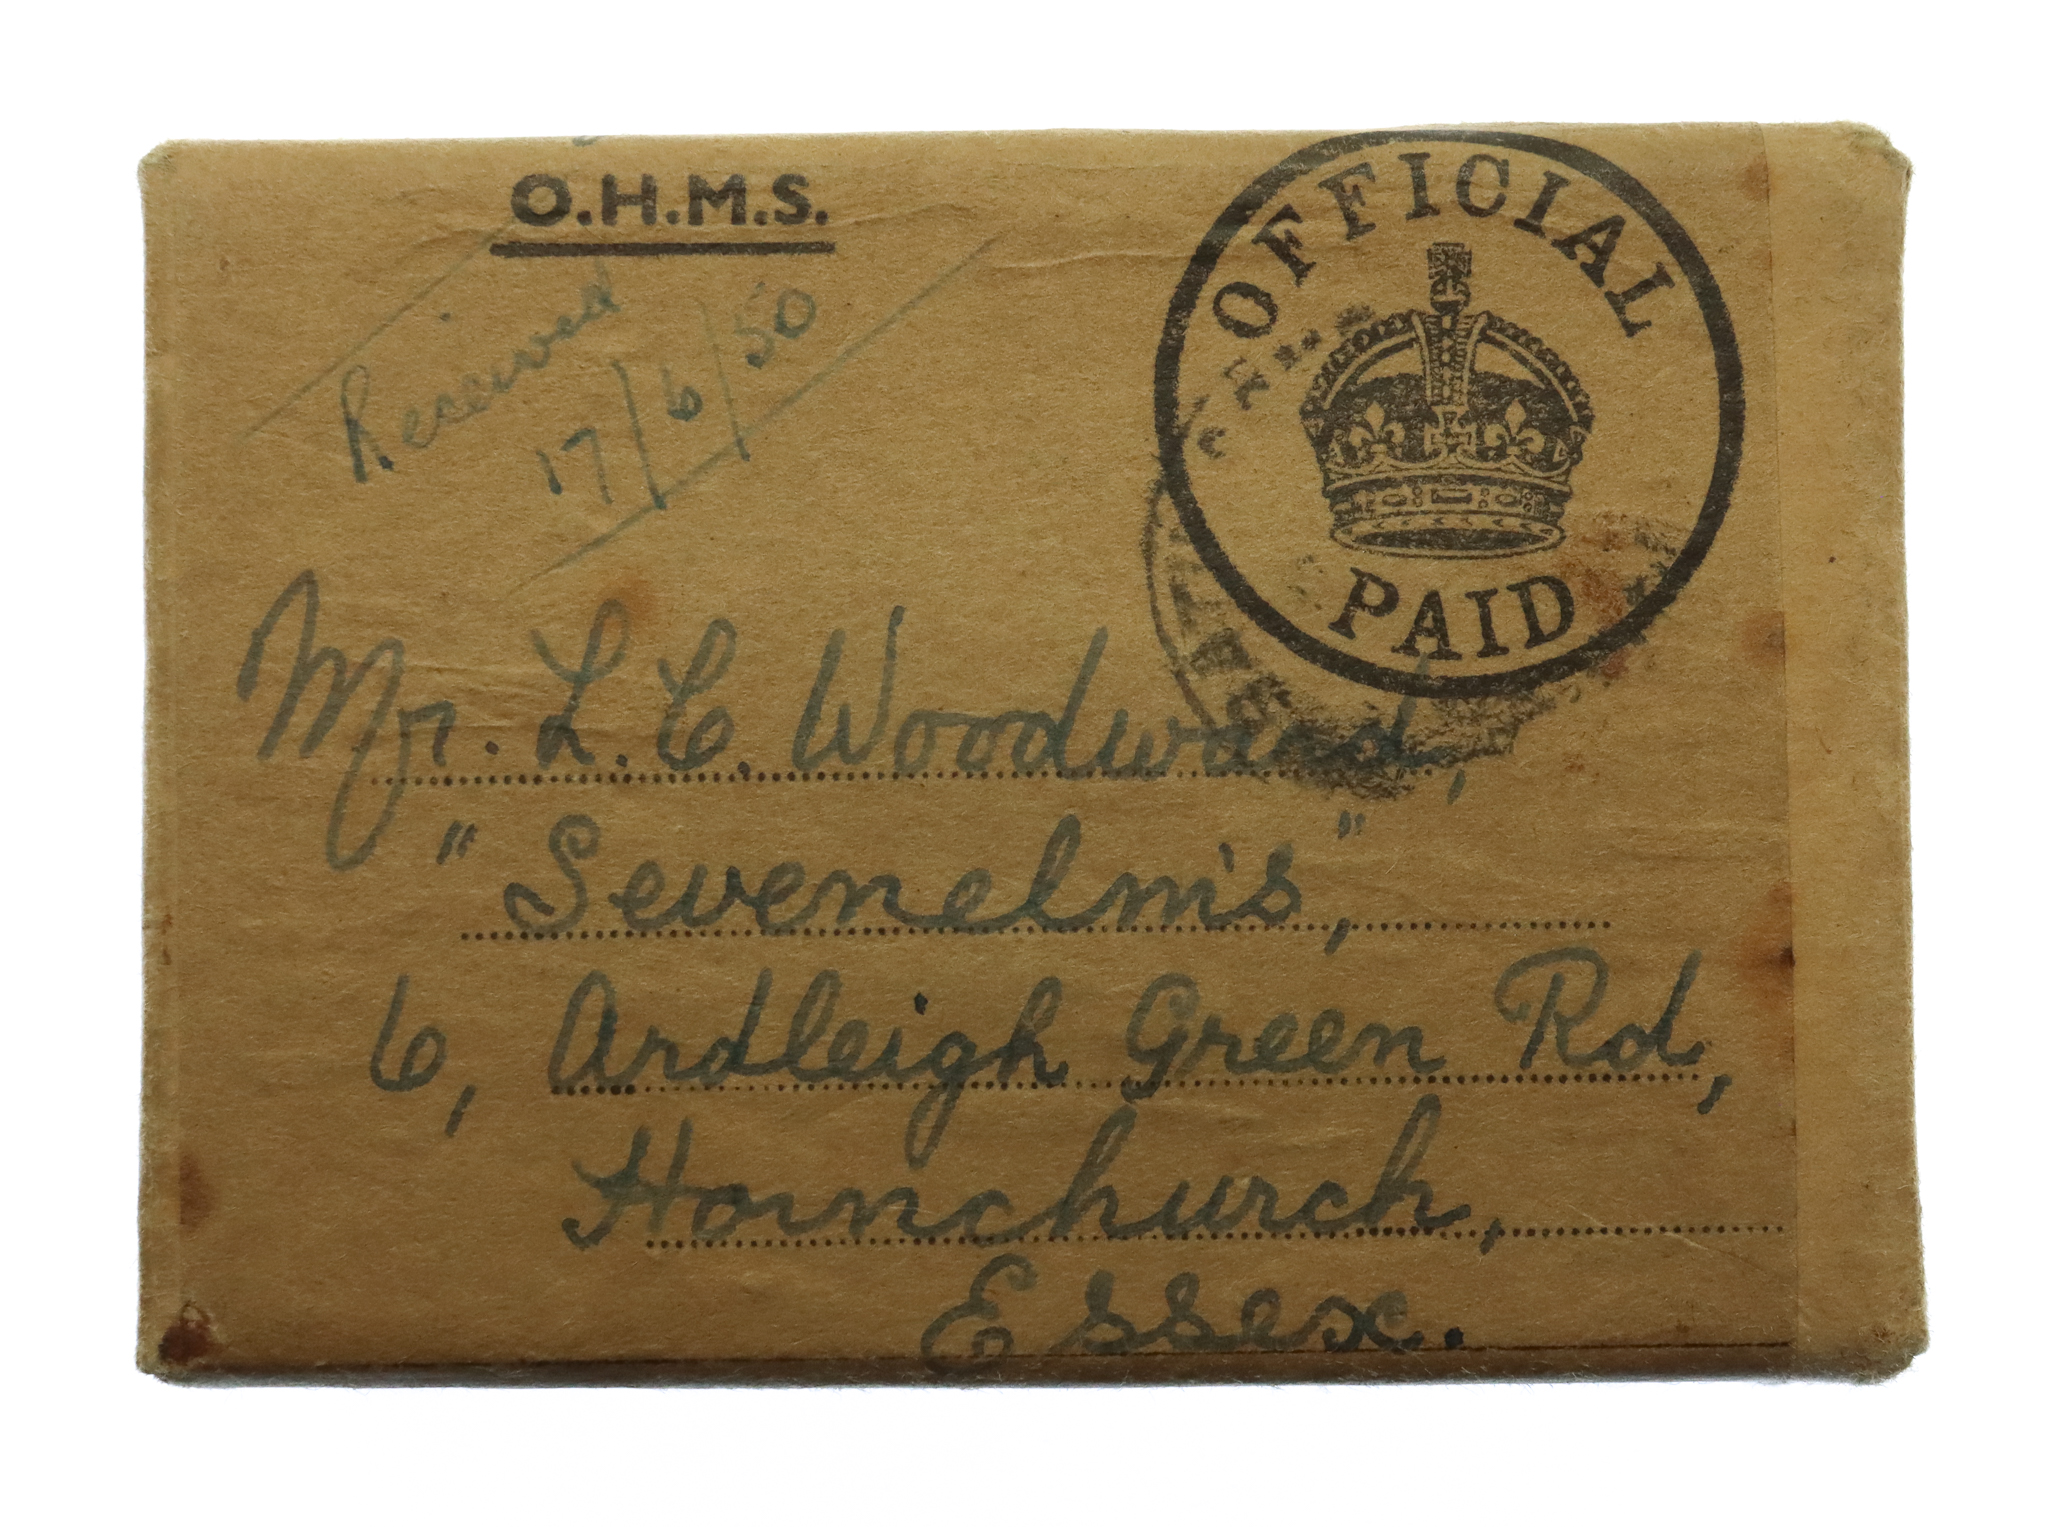 O.H.M.S.
OFFICIAL
PAID
Received
17/6/50
Mr. L. C. Woodward,
"Sevenelms,"
6, Ardleigh Green Rd,
Hornchurch,
Essex.